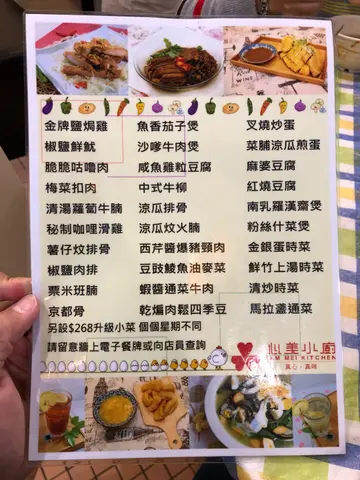 金牌鹽焗雞
椒鹽鮮魷
脆脆咕嚕肉
梅菜扣肉
清湯蘿蔔牛腩
秘制咖哩滑雞
薯仔炆排骨
椒鹽肉排
粟米班腩
京都骨
魚香茄子煲
沙嗲牛肉煲
咸魚雞粒豆腐
中式牛柳
涼瓜排骨
涼瓜炆火腩
西芹醬爆豬頸肉
豆豉鯪魚油麥菜
蝦醬通菜牛肉
乾煸肉鬆四季豆
叉燒炒蛋
菜脯涼瓜煎蛋
麻婆豆腐
紅燒豆腐
南乳羅漢齋煲
粉絲什菜煲
金銀蛋時菜
鮮竹上湯時菜
清炒時菜
馬拉盞通菜
另設$268升級小菜 個個星期不同
請留意牆上電子餐牌或向店員查詢
心美小廚
SAM MEI KITCHEN
真心·真味